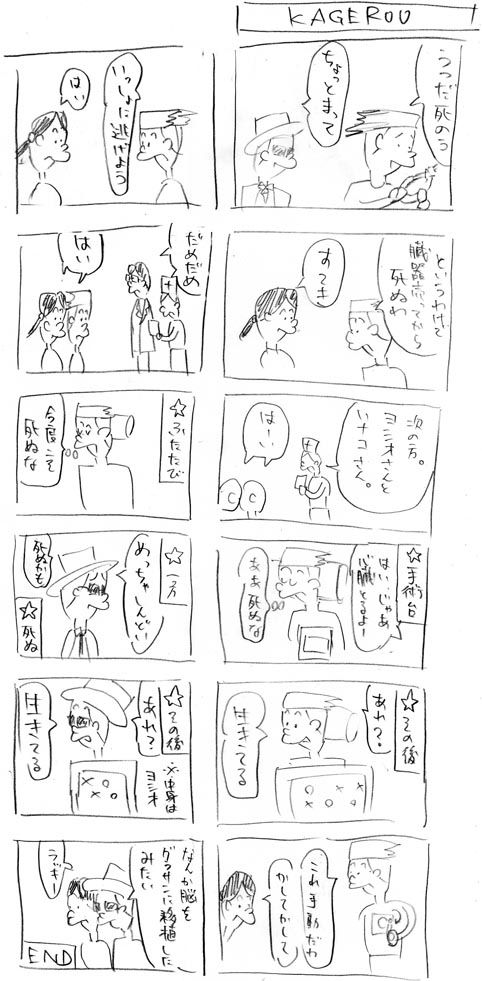 KAGEROU
うつだ死のう
ちょっとまって
というわけで
臓器売ってから
死ぬわ
すてき
次の方。
ヨシオさんと
いナコさん。
はーい
☆手術台
はい、じゃあ
臓とるよー
ああ死ぬな
☆その後
あれ?
生きてる
これ手動だわ
かしてかして
いっしょに逃げよう
はい
だめだめ
はい
☆ふたたび
今度こそ
死ぬな
☆一方
めっちゃしんどい
死ぬかも
☆死ぬ
☆その後
※中身は
ヨシオ
あれ?
生きてる
なんか脳を
グラサンに移植した
みたい
ラッキー
END